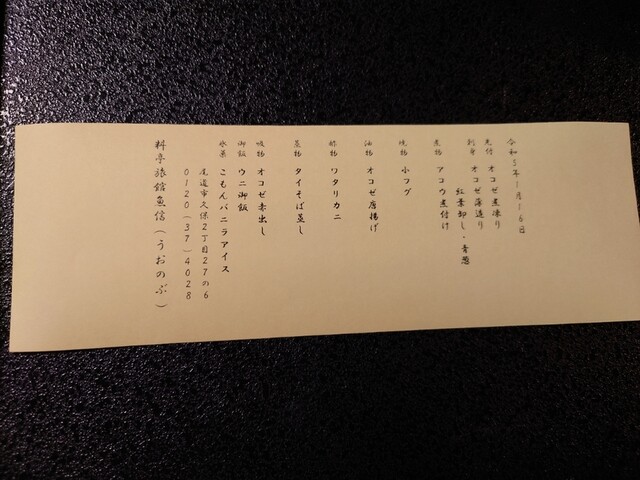 令和5年1月16日
先付 オコゼ煮凍り
刺身 オコゼ薄造り
紅葉卸し・青葱
煮物 アコウ煮付け
焼物 小フグ
油物 オコゼ唐揚げ
酢物 ワタリカニ
蒸物 タイそば蒸し
吸物 オコゼ赤出し
御飯 ウニ御飯
氷菓 こもんバニラアイス
尾道市久保2丁目27の6
0120(37)4028
料亭旅館魚信(うおのぶ)